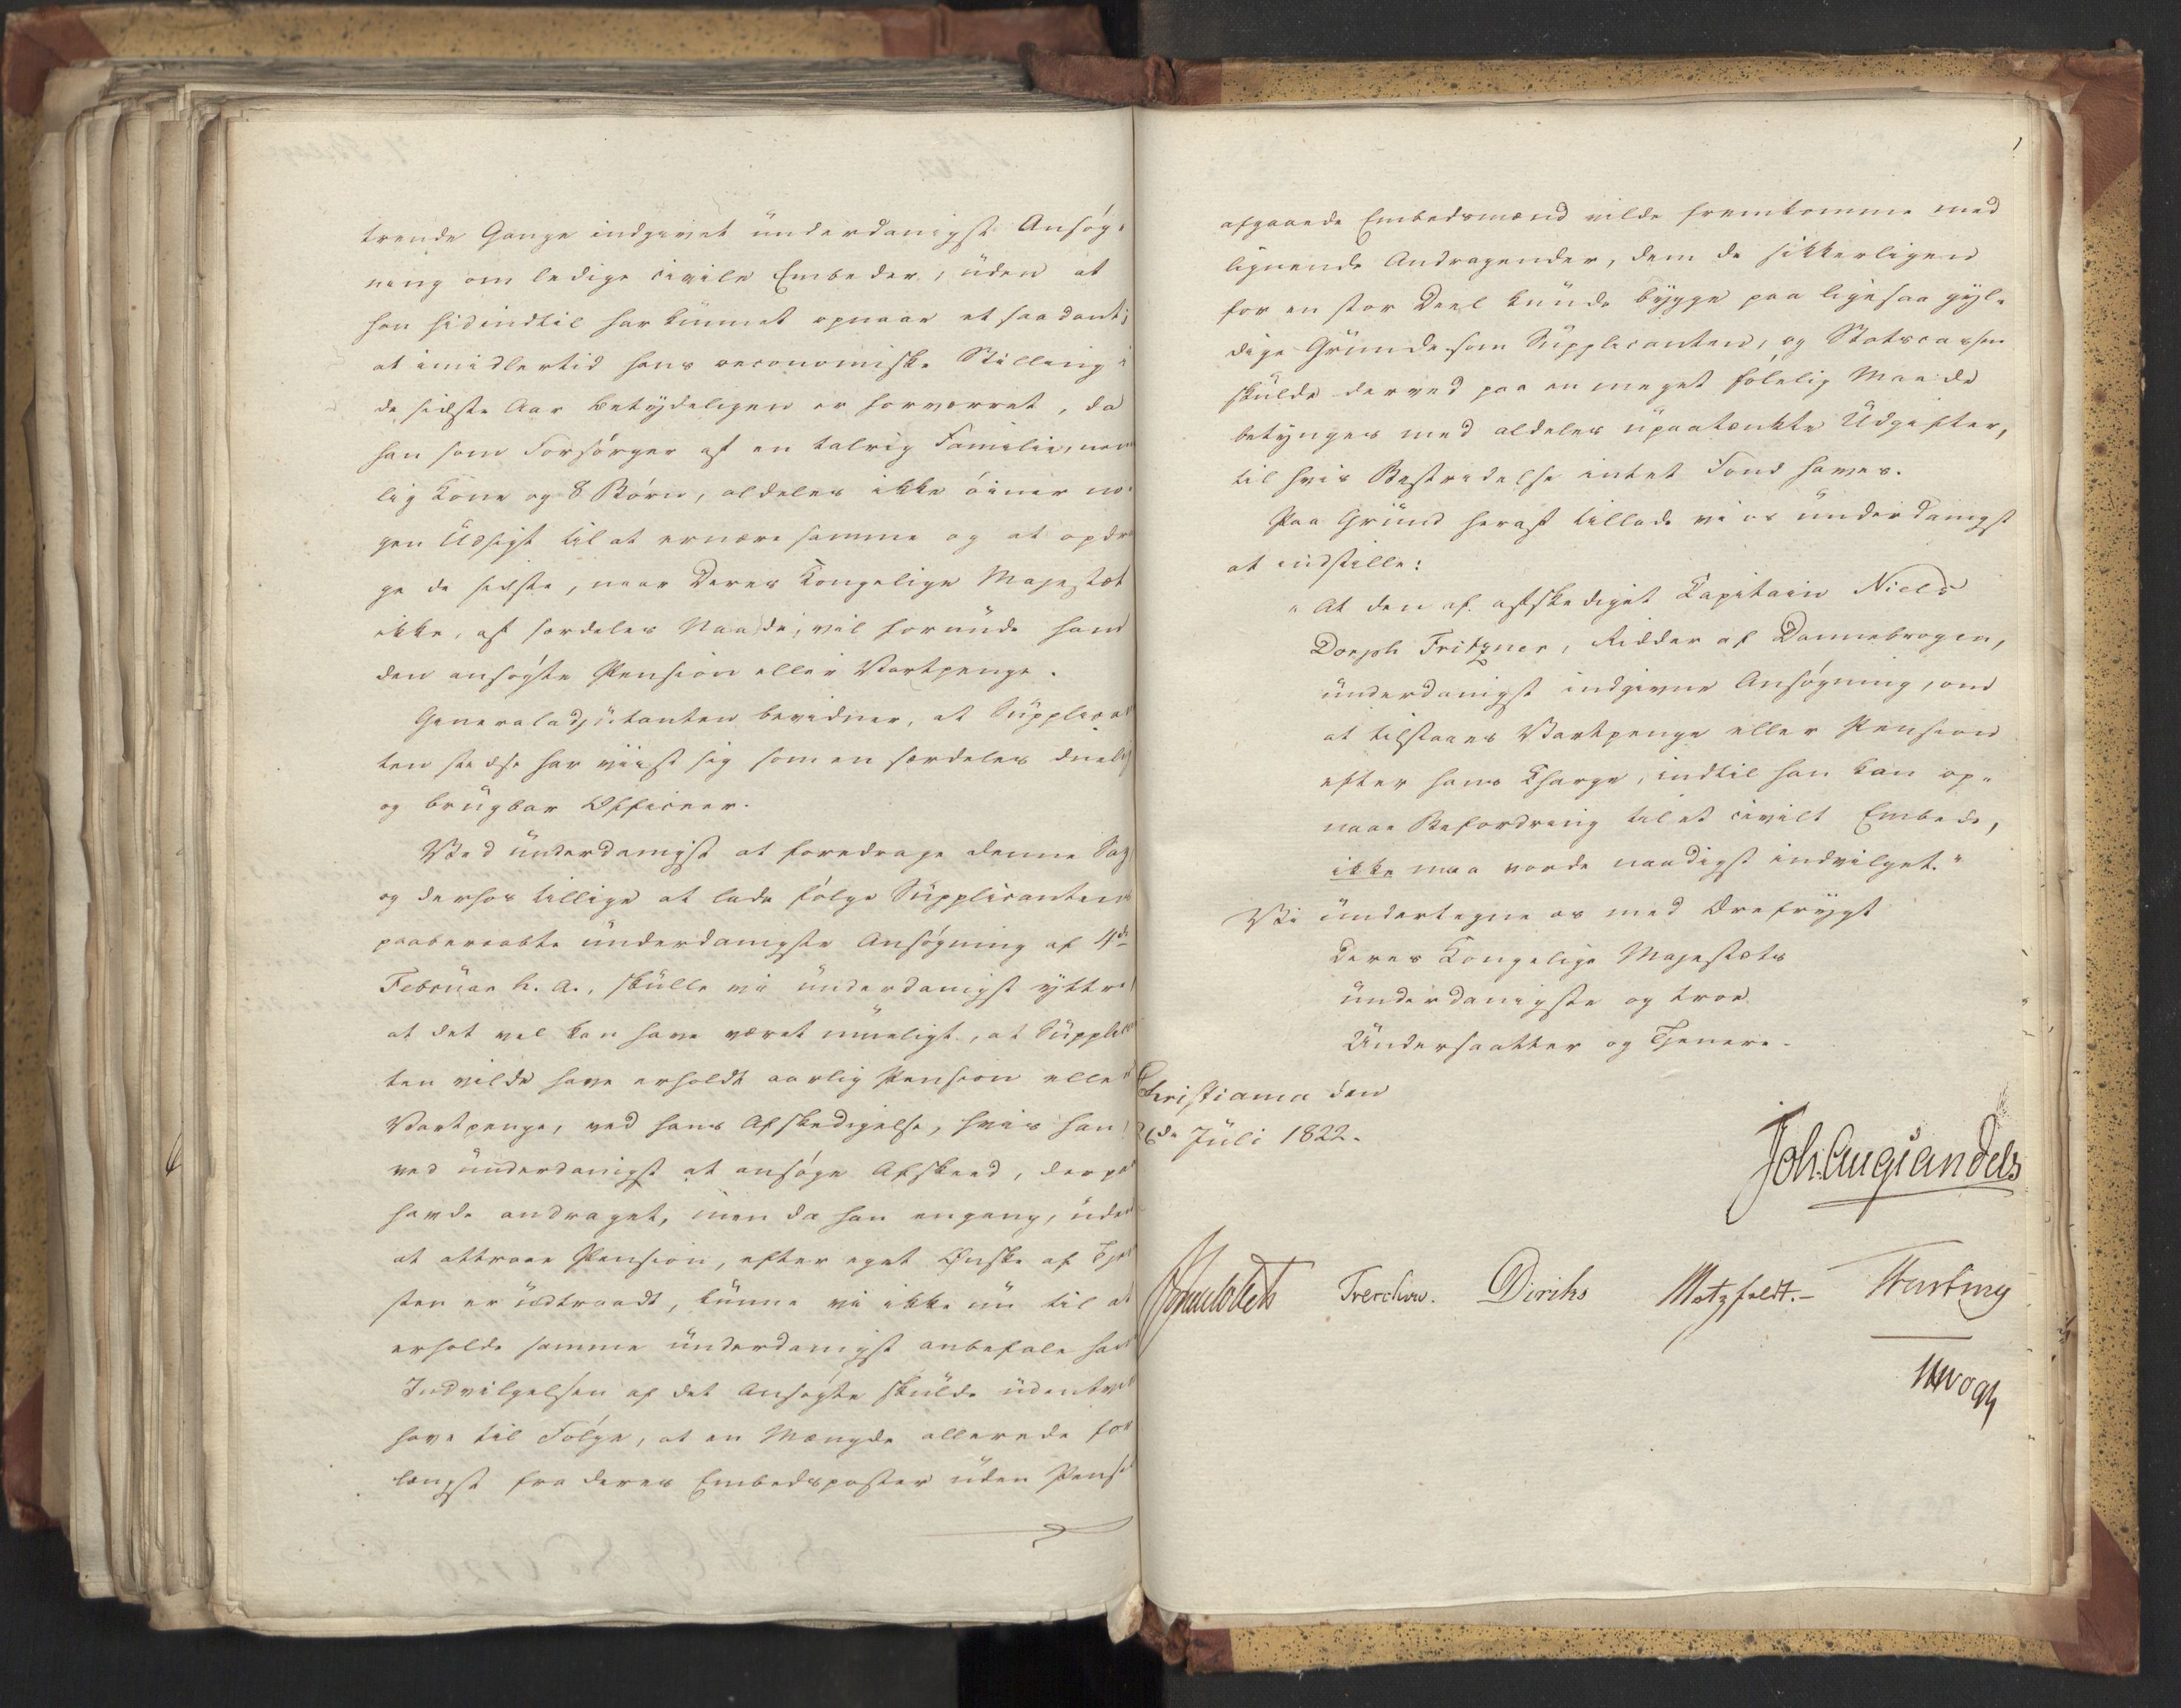 trende Gange indgivet underdanigst Ansøg-
ning om ledige civile Embeder, uden at
han hidindtil har kunnet opnaae et saadant;
at imidlertid hans oeconomiske Stilling i
de sidste Aar betydeligen er forværret, da
han som Forsørger af en talrig Familie, nem
lig Kone og 8 Børn, aldeles ikke øiner no-
gen Udsigt til at ernære samme og at opdra
ge de sidste, naar Deres Kongelige Majestæt
ikke, af særdeles Naade, vil forunde ham
den ansøgte Pension eller Vartpenge.
Generaladjutanten bevidner, at Supplican
ten stedse har viist sig som en særdeles duelig
og brugbar Officeer.
Ved underdanigst at foredrage denne Sag
og derhos tillige at lade følge Supplicantens
paaberaabte underdanigste Ansøgning af 4de
Februar h. a., skulle vi underdanigst yttre,
at det vel kan have været mueligt, at Supplican
ten vilde have erholdt aarlig Pension eller
Vartpenge, ved hans Afskedigelse, hvis han,
ved underdanigst at ansøge Afskeed, derpaa
havde andraget, men da han engang, uden
at attraae Pension, efter eget Ønske af Tjene
sten er udtraadt, kunne vi ikke nu til at
erholde samme underdanigst anbefale ham
Indvilgelsen af det Ansøgte skulde udentvivl
have til Følge, at en Mængde allerede for
længst fra deres Embedsposter uden Pension
afgaaede Embedsmænd vilde fremkomme med
lignende Andragender, dem de sikkerligen
for en stor Deel kunde bygge paa ligesaa gyl-
dige Grunde som Supplicanten, og Statscassen
skulde derved paa en meget følelig Maade
betynges med aldeles upaatænkte Udgifter,
til hvis Bestridelse intet Fond haves.
Paa Grund heraf tillade vi os underdanigst
at indstille:
"At den af afskediget Kapitain Niels
Dorph Fritzner, Ridder af Dannebrogen,
underdanigst indgivne Ansøgning, om
at tilstaaes Vartpenge eller Pension
efter hans Charge, indtil han kan op-
naae Befordring til et civilt Embede,
ikke maa vorde naadigst indvilget."
Vi undertegne os med Ærefrygt
Deres Kongelige Majestæts
underdanigste og troe
Undersaatter og Tjenere.
Christiania den
26de Juli 1822.
Joh: Aug: Sandels
Sommerhielm Treschow. Diriks Motzfeldt.- Fasting
Vogt